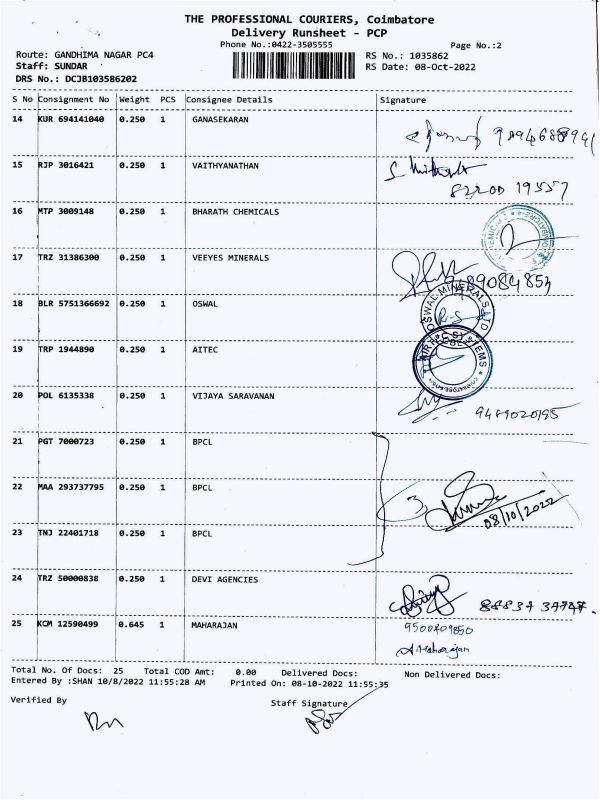 THE PROFESSIONAL COURIERS, Coimbatore
Delivery Runsheet - PCP
Phone No.:0422-3505555 Page No.:2
Route: GANDHIMA NAGAR PC4 RS No.: 1035862
Staff: SUNDAR RS Date: 08-Oct-2022
DRS No.: DCJB103586202
S No Consignment No Weight PCS Consignee Details Signature
14 KUR 694141040 0.250 1 GANASEKARAN
15 RJP 3016421 0.250 1 VAITHYANATHAN
82200 19557
16 MTP 3009148 0.250 1 BHARATH CHEMICALS
17 TRZ 31386300 0.250 1 VEEYES MINERALS
9489084853
18 BLR 5751366692 0.250 1 OSWAL
OSWAL MINERALS LTD
19 TRP 1944890 0.250 1 AITEC
20 POL 6135338 0.250 1 VIJAYA SARAVANAN
9489020195
21 PGT 7000723 0.250 1 BPCL
22 MAA 293737795 0.250 1 BPCL
08/10/2022
23 TNJ 22401718 0.250 1 BPCL
24 TRZ 50000838 0.250 1 DEVI AGENCIES
25 KCM 12590499 0.645 1 MAHARAJAN
Maharajan
Total No. Of Docs: 25 Total COD Amt: 0.00 Delivered Docs: Non Delivered Docs:
Entered By :SHAN 10/8/2022 11:55:28 AM Printed On: 08-10-2022 11:55:35
Verified By Staff Signature